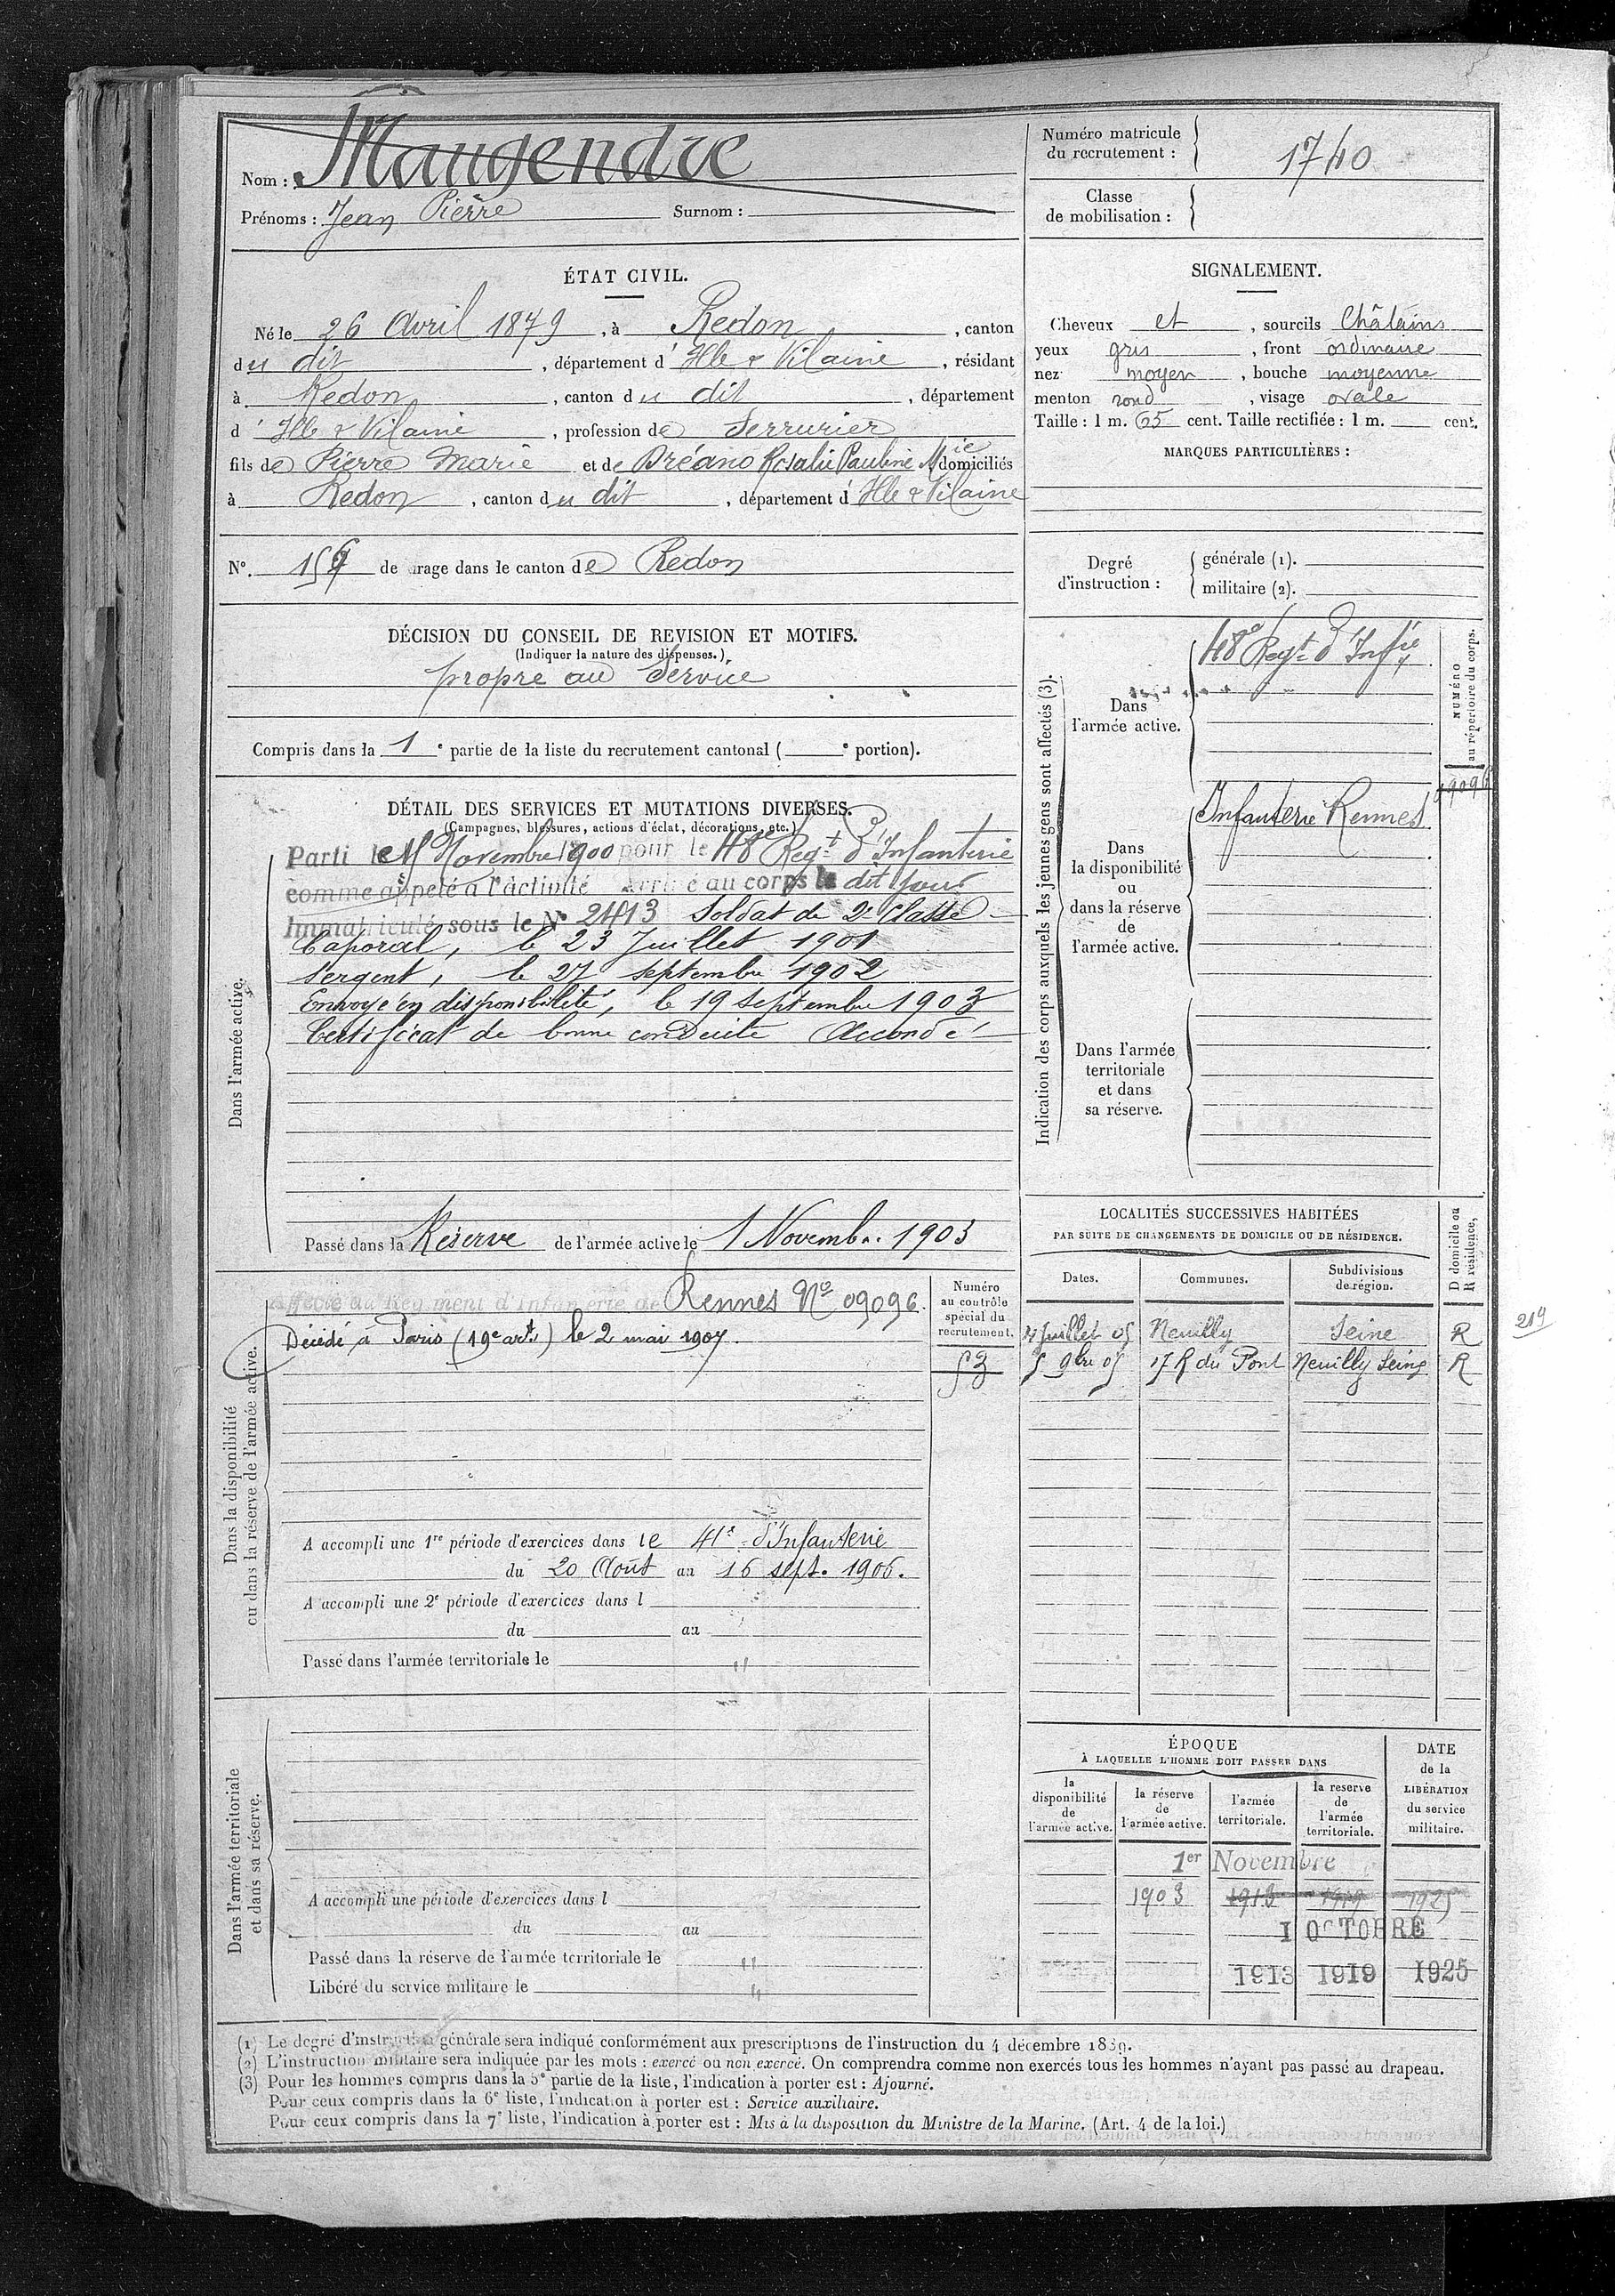 Nom : Maugendre
Prénoms : Jean Pierre Surnom :
Numéro matricule du recrutement : 1740
Classe de mobilisation :
ÉTAT CIVIL.
Né le 26 Avril 1879, à Redon, canton
du dit, département d'Ille & Vilaine, résidant
à Redon, canton du dit, département
d'Ille & Vilaine, profession de Serrurier
fils de Pierre Marie et de Bréano Rosalie Pauline Mie domiciliés
à Redon, canton du dit, département d'Ille & Vilaine
N°. de tirage dans le canton de Redon
SIGNALEMENT.
Cheveux et, sourcils Châtains
yeux gris, front ordinaire
nez moyen, bouche moyenne
menton rond, visage ovale
Taille : 1 m. 65 cent. Taille rectifiée : 1 m. cent.
MARQUES PARTICULIÈRES :
Degré d'instruction :
générale (1).
militaire (2).
DÉCISION DU CONSEIL DE REVISION ET MOTIFS.
(Indiquer la nature des dispenses.)
propre au Service
Compris dans la 1e partie de la liste du recrutement cantonal ( e portion).
DÉTAIL DES SERVICES ET MUTATIONS DIVERSES.
(Campagnes, blessures, actions d'éclat, décorations, etc.)
Dans l'armée active.
Parti le Novembre 1900 pour le 48e Regt d'Infanterie
comme appelé à l'activité Arrivé au corps le dit jour
Immatriculé sous le N° 2413 Soldat de 2e Classe
Caporal, le 23 Juillet 1901
Sergent, le 27 septembre 1902
Envoyé en disponibilité, le 19 septembre 1903
Certificat de bonne conduite Accordé
Passé dans la Réserve de l'armée active le 1 Novembre 1903
Indication des corps auxquels les jeunes gens sont affectés (3).
NUMÉRO au répertoire du corps.
Dans l'armée active.
48e Regt d'Infie
Dans la disponibilité ou dans la réserve de l'armée active.
Infanterie Rennes 09096
Dans l'armée territoriale et dans sa réserve.
Dans la disponibilité ou dans la réserve de l'armée active.
Affecté au Régiment d'Infanterie de Rennes No 09096.
Décédé à Paris (19e artt) le 2 mai 1907.
Numéro au contrôle spécial du recrutement.
53
A accompli une 1re période d'exercices dans le 41e d'Infanterie
du 20 Août au 16 sept. 1906.
A accompli une 2e période d'exercices dans l
du au
Passé dans l'armée territoriale le
LOCALITÉS SUCCESSIVES HABITÉES
PAR SUITE DE CHANGEMENTS DE DOMICILE OU DE RÉSIDENCE.
D domicile ou R résidence,
Dates. Communes. Subdivisions de région.
4 Juillet 05 Neuilly Seine R
5 9bre 05 17 R du Pont Neuilly Seine R
219
Dans l'armée territoriale et dans sa réserve.
A accompli une période d'exercices dans l
du au
Passé dans la réserve de l'armée territoriale le
Libéré du service militaire le
ÉPOQUE
À LAQUELLE L'HOMME DOIT PASSER DANS
la disponibilité de l'armée active.
la réserve de l'armée active.
l'armée territoriale.
la reserve de l'armée territoriale.
DATE de la LIBÉRATION du service militaire.
1er Novembre
1903 1913 1919 1925
1 OCTOBRE
1913 1919 1925
(1) Le degré d'instruction générale sera indiqué conformément aux prescriptions de l'instruction du 4 décembre 1889.
(2) L'instruction militaire sera indiquée par les mots : exercé ou non exercé. On comprendra comme non exercés tous les hommes n'ayant pas passé au drapeau.
(3) Pour les hommes compris dans la 5e partie de la liste, l'indication à porter est : Ajourné.
Pour ceux compris dans la 6e liste, l'indication à porter est : Service auxiliaire.
Pour ceux compris dans la 7e liste, l'indication à porter est : Mis à la disposition du Ministre de la Marine. (Art. 4 de la loi.)